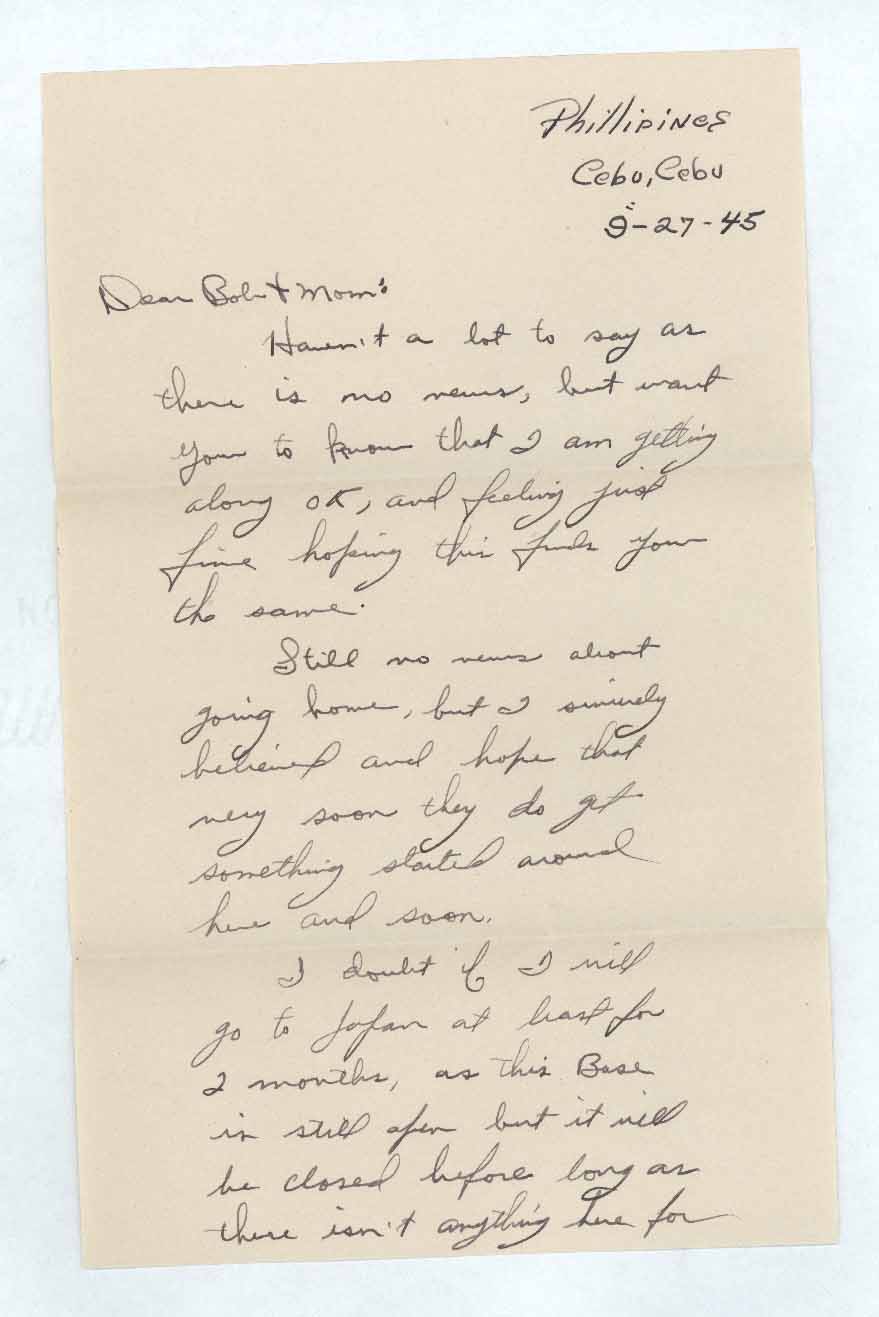 Phillipines
Cebu, Cebu
9-27-45
Dear Bob & Mom:
Haven't a lot to say as
there is no news, but want
you to know that I am getting
along OK, and feeling just
fine hoping this finds you
the same.
Still no news about
going home, but I sincerely
believed and hope that
very soon they do get
something started around
here and soon.
I doubt if I will
go to Japan at least for
2 months, as this Base
is still open but it will
be closed before long as
there isn't anything here for